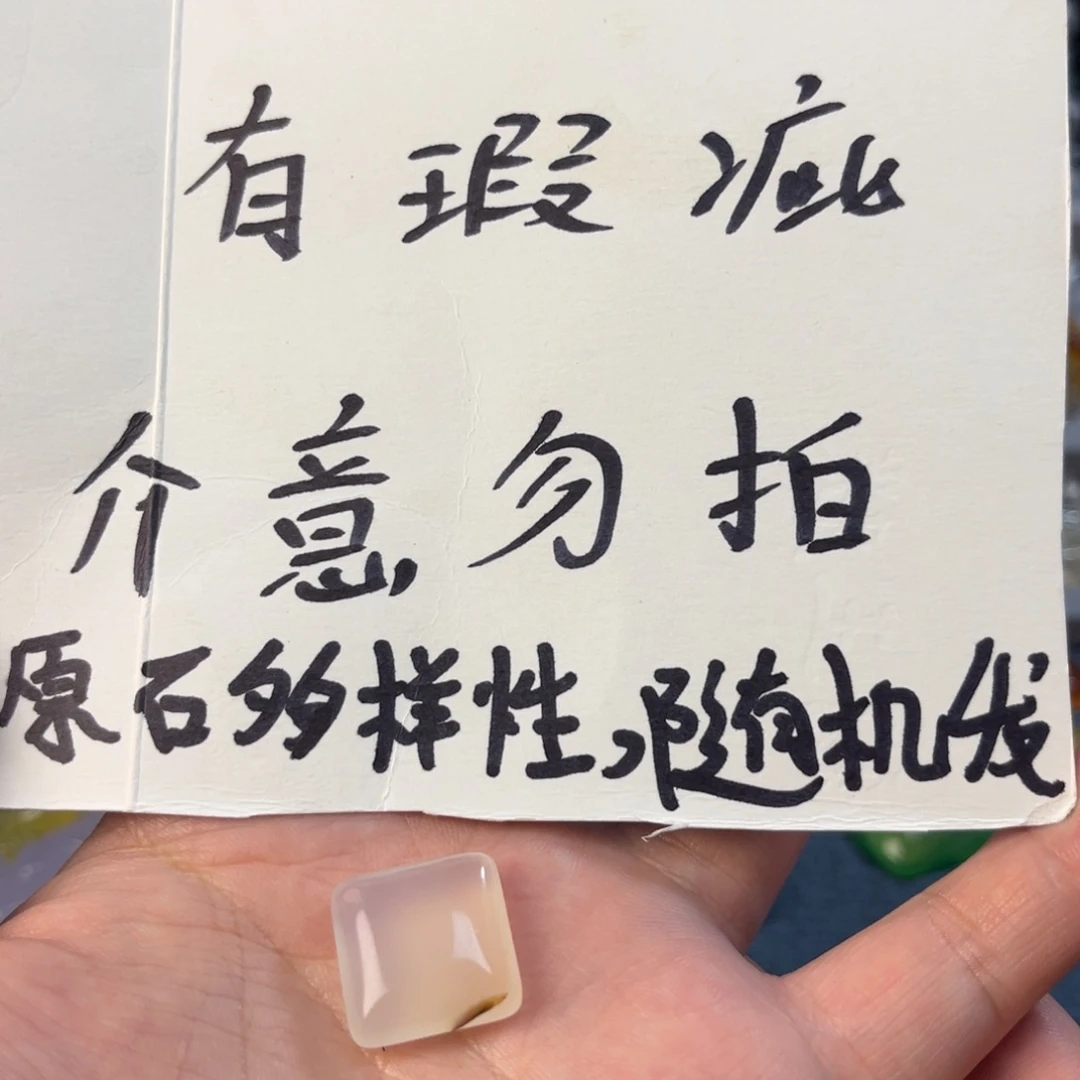 有瑕疵
介意勿拍
原石多样性,随机发